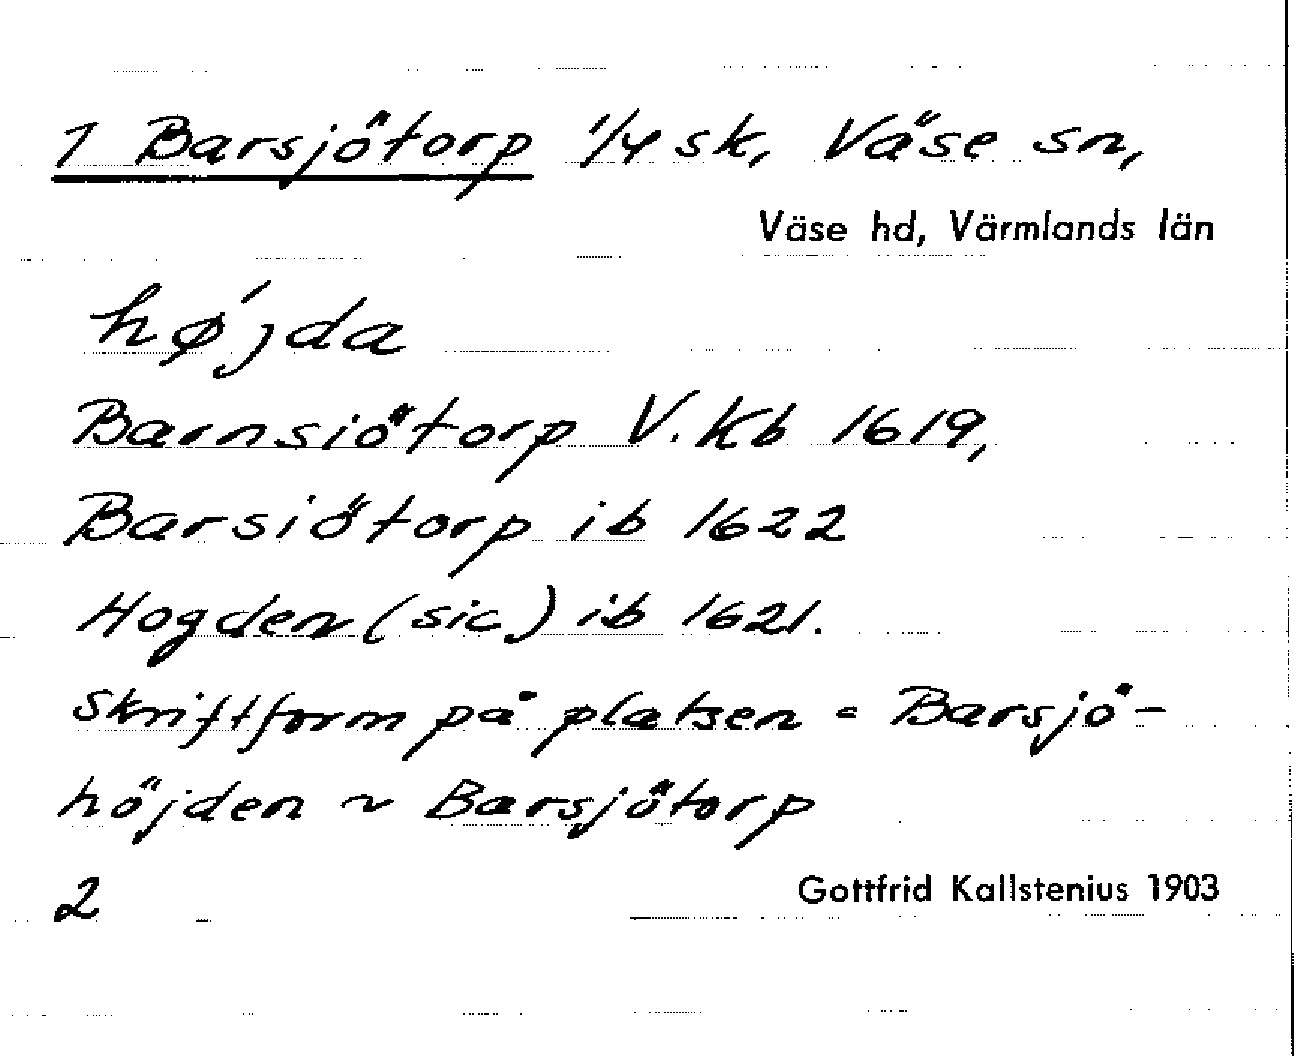 1 Barsjötorp 1/4 sk, Väse sn,
Väse hd, Värmlands län
hǿjda
Barnsiötorp V. Kb 1619,
Barsiötorp ib 1622
Hogden (sic) ib 1621.
Skriftform på platsen = Barsjö-
höjden ~ Barsjötorp
2
Gottfrid Kallstenius 1903